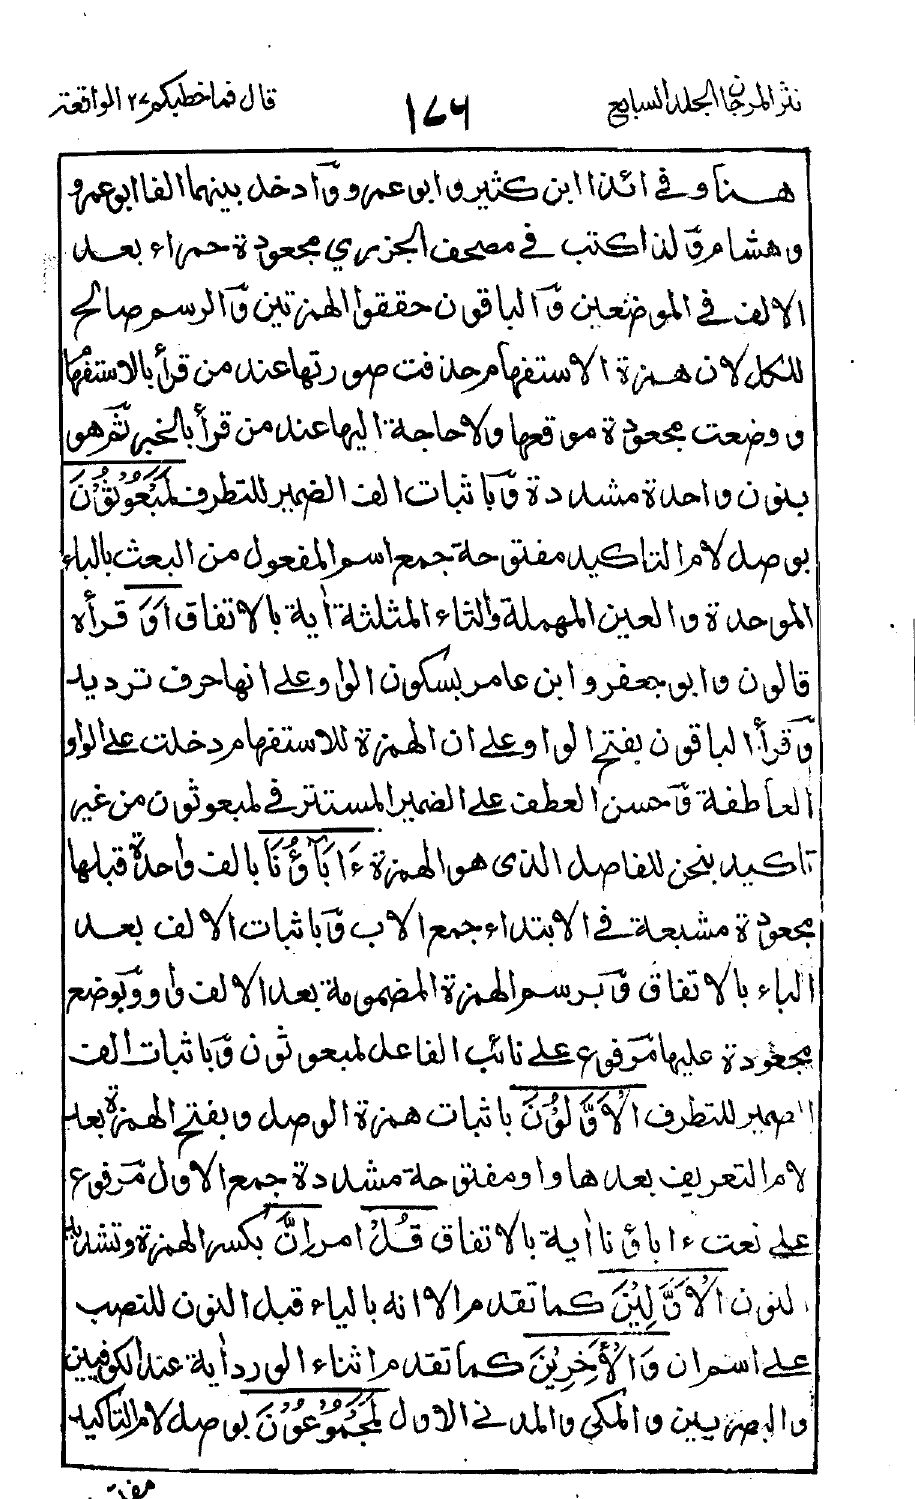 نثر المرجان الجلد السابع
١٧٦
قال فما خطبكم ٢٧ الواقعة
هنا و في ائذا ابن كثير و ابى عمرو وَّ ادخل بينهما الفا ابو عمرو
و هشام وَّ لذا كتب في مصحف الجزري مجعودة حمراء بعد
الالف في الموضعين وَّ الباقون حققوا الهمزتين وَّ الرسم صالح
للكل لان همزة الاستفهام حذفت صورتها عند من قرأ بالاستفهام
و وضعت مجعودة موقعها و لا حاجة اليها عند من قرأ بالخبر ثم هو
بنون واحدة مشددة وَّ باثبات الف الضمير للتطرف لَمَبْعُوْثُوْنَ
بوصل لام التاكيد مفتوحة جمع اسم المفعول من البعث بالباء
الموحدة و العين المهملة و الثاء المثلثة اٰية بالاتفاق اَوَ قرأه
قالون و ابو جعفر و ابن عامر بسكون الواو على انها حرف ترديد
وَّ قرأ الباقون بفتح الواو على ان الهمزة للاستفهام دخلت على الواو
العاطفة وَّ حسن العطف على الضمير المستتر في لمبعوثون من غير
تاكيد بنحن للفاصل الذى هو الهمزة ءَابَآؤُنَا بالف واحدة قبلها
مجعودة مشبعة في الابتداء جمع الاب وَّ باثبات الالف بعد
الباء بالاتفاق وَّ برسم الهمزة المضمومة بعد الالف واو وَّ بوضع
مجعودة عليها مرفوع على نائب الفاعل لمبعوثون وَّ باثبات الف
الضمير للتطرف الْاَوَّلُوْنَ باثبات همزة الوصل و بفتح الهمزة بعد
لام التعريف بعدها واو مفتوحة مشددة جمع الاول مرفوع
على نعت ءاباؤنا اٰية بالاتفاق قُلْ امر اِنَّ بكسر الهمزة و تشديد
النون الْاَوَّلِيْنَ كما تقدم الا انه بالياء قبل النون للنصب
على اسم ان وَالْاٰخِرِيْنَ كما تقدم اثناء الورد اٰية عند الكوفيين
و البصريين و المكى و المدنى الاول لَمَجْمُوْعُوْنَ بوصل لام التاكيد